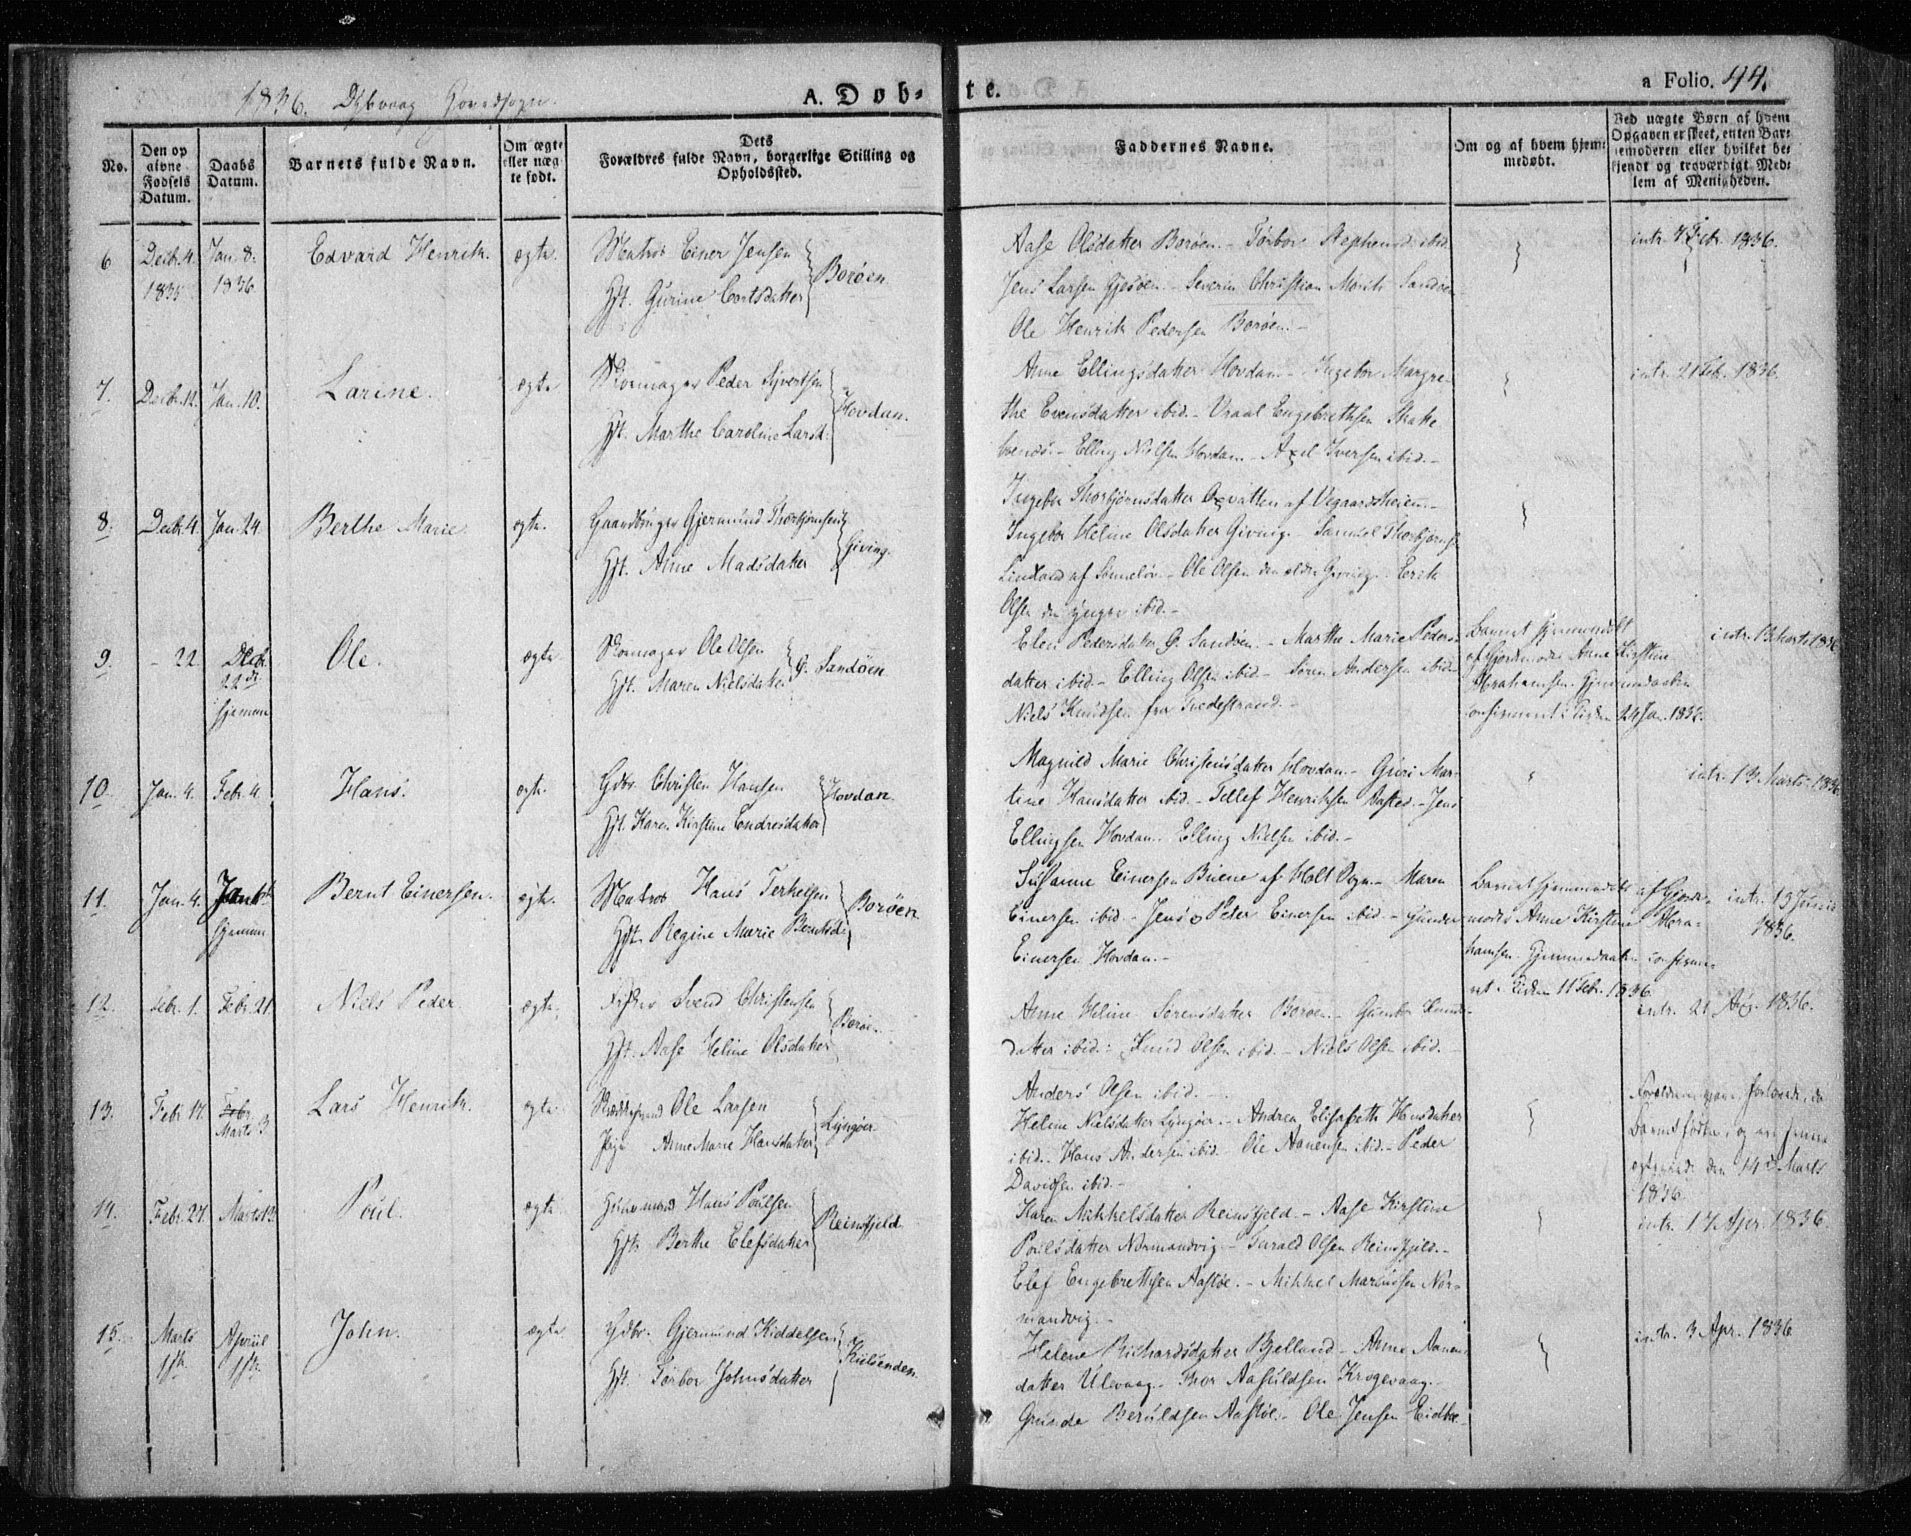 1836. Dybvaag Hovedsogn.
A. Døb-
te.
a Folio. 44.
No.
Den op
givne
Fødsels
Datum.
Daabs
Datum.
Barnets fulde Navn.
Om ægte
eller uæg
te født.
Dets
Forældres fulde Navn, borgerlige Stilling og
Opholdssted.
Faddernes Navne.
Om og af hvem hjem-
medøbt.
Ved uægte Børn af hvem
Opgaven er skeet, enten Bar-
nemoderen eller hvilket be-
kjendt og troværdigt Med-
lem af Menigheden.
6
Decb. 4.
1835
Jan. 8.
1836
Edvard Henrik.
ægte.
Matros Einer Jensen
Hst. Gurine Cortsdatter
Borøen
Aase Olsdatter Borøen. - Torbor Stephensd. ibid.
Jens Larsen Gjesøen. - Severin Christian Moritz Sandøen
Ole Henrik Pedersen Borøen. -
intr. 4 Febr. 1836.
7.
Decb. 12.
Jan. 10.
Larine.
ægte
Skomager Peder Syvertsen
Hst. Marthe Caroline Larsd.
Hovdan.
Anne Ellingsdatter Hovdan - Ingebor Margre-
the Evensdatter ibid. - Vraal Engebrethsen
- Elling Nielsen Hovdan - Axel Iversen ibid. -
intr. 21 Febr. 1836.
8.
Decb. 4.
Jan. 24.
Berthe Marie
ægte.
Gaardbruger Gjermund Thorbjørnsen
Hst. Anne Madsdatter
Giving.
Ingebor Thorbjørnsdatter af Vegaardsheien. -
Ingebor Heline Olsdatter Giving. Samuel Thorbjørns.
af Sønneløv - Ole Olsen den eldre Giving. Erik
Olsen den yngre ibid. -
9.
- 22.
Decb.
22de
hjemme
Ole.
ægte
Skomager Ole Olsen
Hst. Maren Nielsdatter
G. Sandøen
Elen Pedersdatter G. Sandøen. - Marthe Marie Peders-
datter ibid. - Elling Olsen ibid. - Søren Andersen ibid.
Niels Knudsen fra Tvedestrand. -
Barnet hjemmedøbt
af Gjordemoder Anne Kirstine
Abrahamsen. Hjemmedaaben
confirmeret i Kirken 24 Jan. 1836.
intr. 13 Marts 1836
10.
Jan. 4.
Febr. 4.
Hans.
ægte.
Gdbr. Christen Hansen
Hst. Karen Kirstine Endresdatter
Hovdan.
Magnild Marie Christensdatter Hovdan - Guri Mar-
tine Hansdatter ibid. - Tellef Henriksen - Jens
Ellingsen Hovdan. Elling Nielsen ibid. -
intr. 13. Marts. 1836
11.
Jan. 4.
hjemme
Bernt Einersen.
ægte.
Matros Hans Terkelsen
Hst. Regine Marie Berntsd.
Borøen
Susanne Einersen Buene af Holt Sogn - Maren
Einersen ibid. - Jens Peter Einersen ibid. - Gunder
Einersen Hovdan. -
Barnet hjemmedøbt af Gjorde-
moder Anne Kirstine Abra-
hamsen. Hjemmedaaben confirme-
ret i Kirken 11 Febr. 1836.
intr. 19 Juni
1836.
12.
Febr. 1.
Febr. 21.
Niels Peder
ægte.
Svend Christensen
Hst. Aase Heline Olsdatter
Borøen.
Anne Heline Sørensdatter Borøen. - Gunbor Knuds-
datter ibid. - Knud Olsen ibid. - Niels Olsen ibid. -
Anders Olsen ibid. -
intr. 21 Apr. 1836.
13.
Febr. 17.
Febr.
Marts 3
Lars Henrik.
ægte.
Ole Larsen
Pige Anne Marie Hansdatter
Lyngøer
Heline Nielsdatter Lyngøer. - Andrea Elisabeth Hansdatter
ibid. - Hans Andersen ibid. Ole Aanensen ibid. - Peder
Davidsen ibid. -
Forældrene vare forlovede, da
Barnet fødtes, og ere senere
ægteviede den 14de Marts
1836
14.
Febr. 27.
Marts 13.
Poul.
ægte.
Huusmand Hans Poulsen
Hst. Berthe Elefsdatter
Reinsfjeld
Karen Mikkelsdatter Reinsfjeld - Aase Kirstine
Poulsdatter Normandvig - Tarald Olsen Reinsfjeld. -
Elef Engebrethsen Aasløe. - Mikkel Marcussen Nor-
mandvig. -
intr. 17 Apr. 1836.
15.
Marts
1ste
April
1ste.
John.
ægte
Gdbr. Gjermund Kiddelsen
Hst. Torbor Johnsdatter
Kiilsenden
Helene Richardsdatter Bjelland - Anne Aanens-
datter Ulevaag. Thor Aasuldsen Krogevaag. -
Grunde Beruldsen Aasløe. - Ole Jensen
intr. 3 Apr. 1836